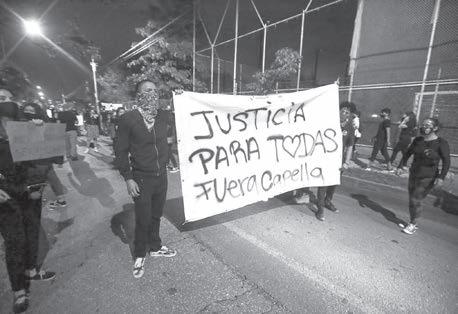 JUSTICIA
PARA TODAS
FUERA CAPELLA